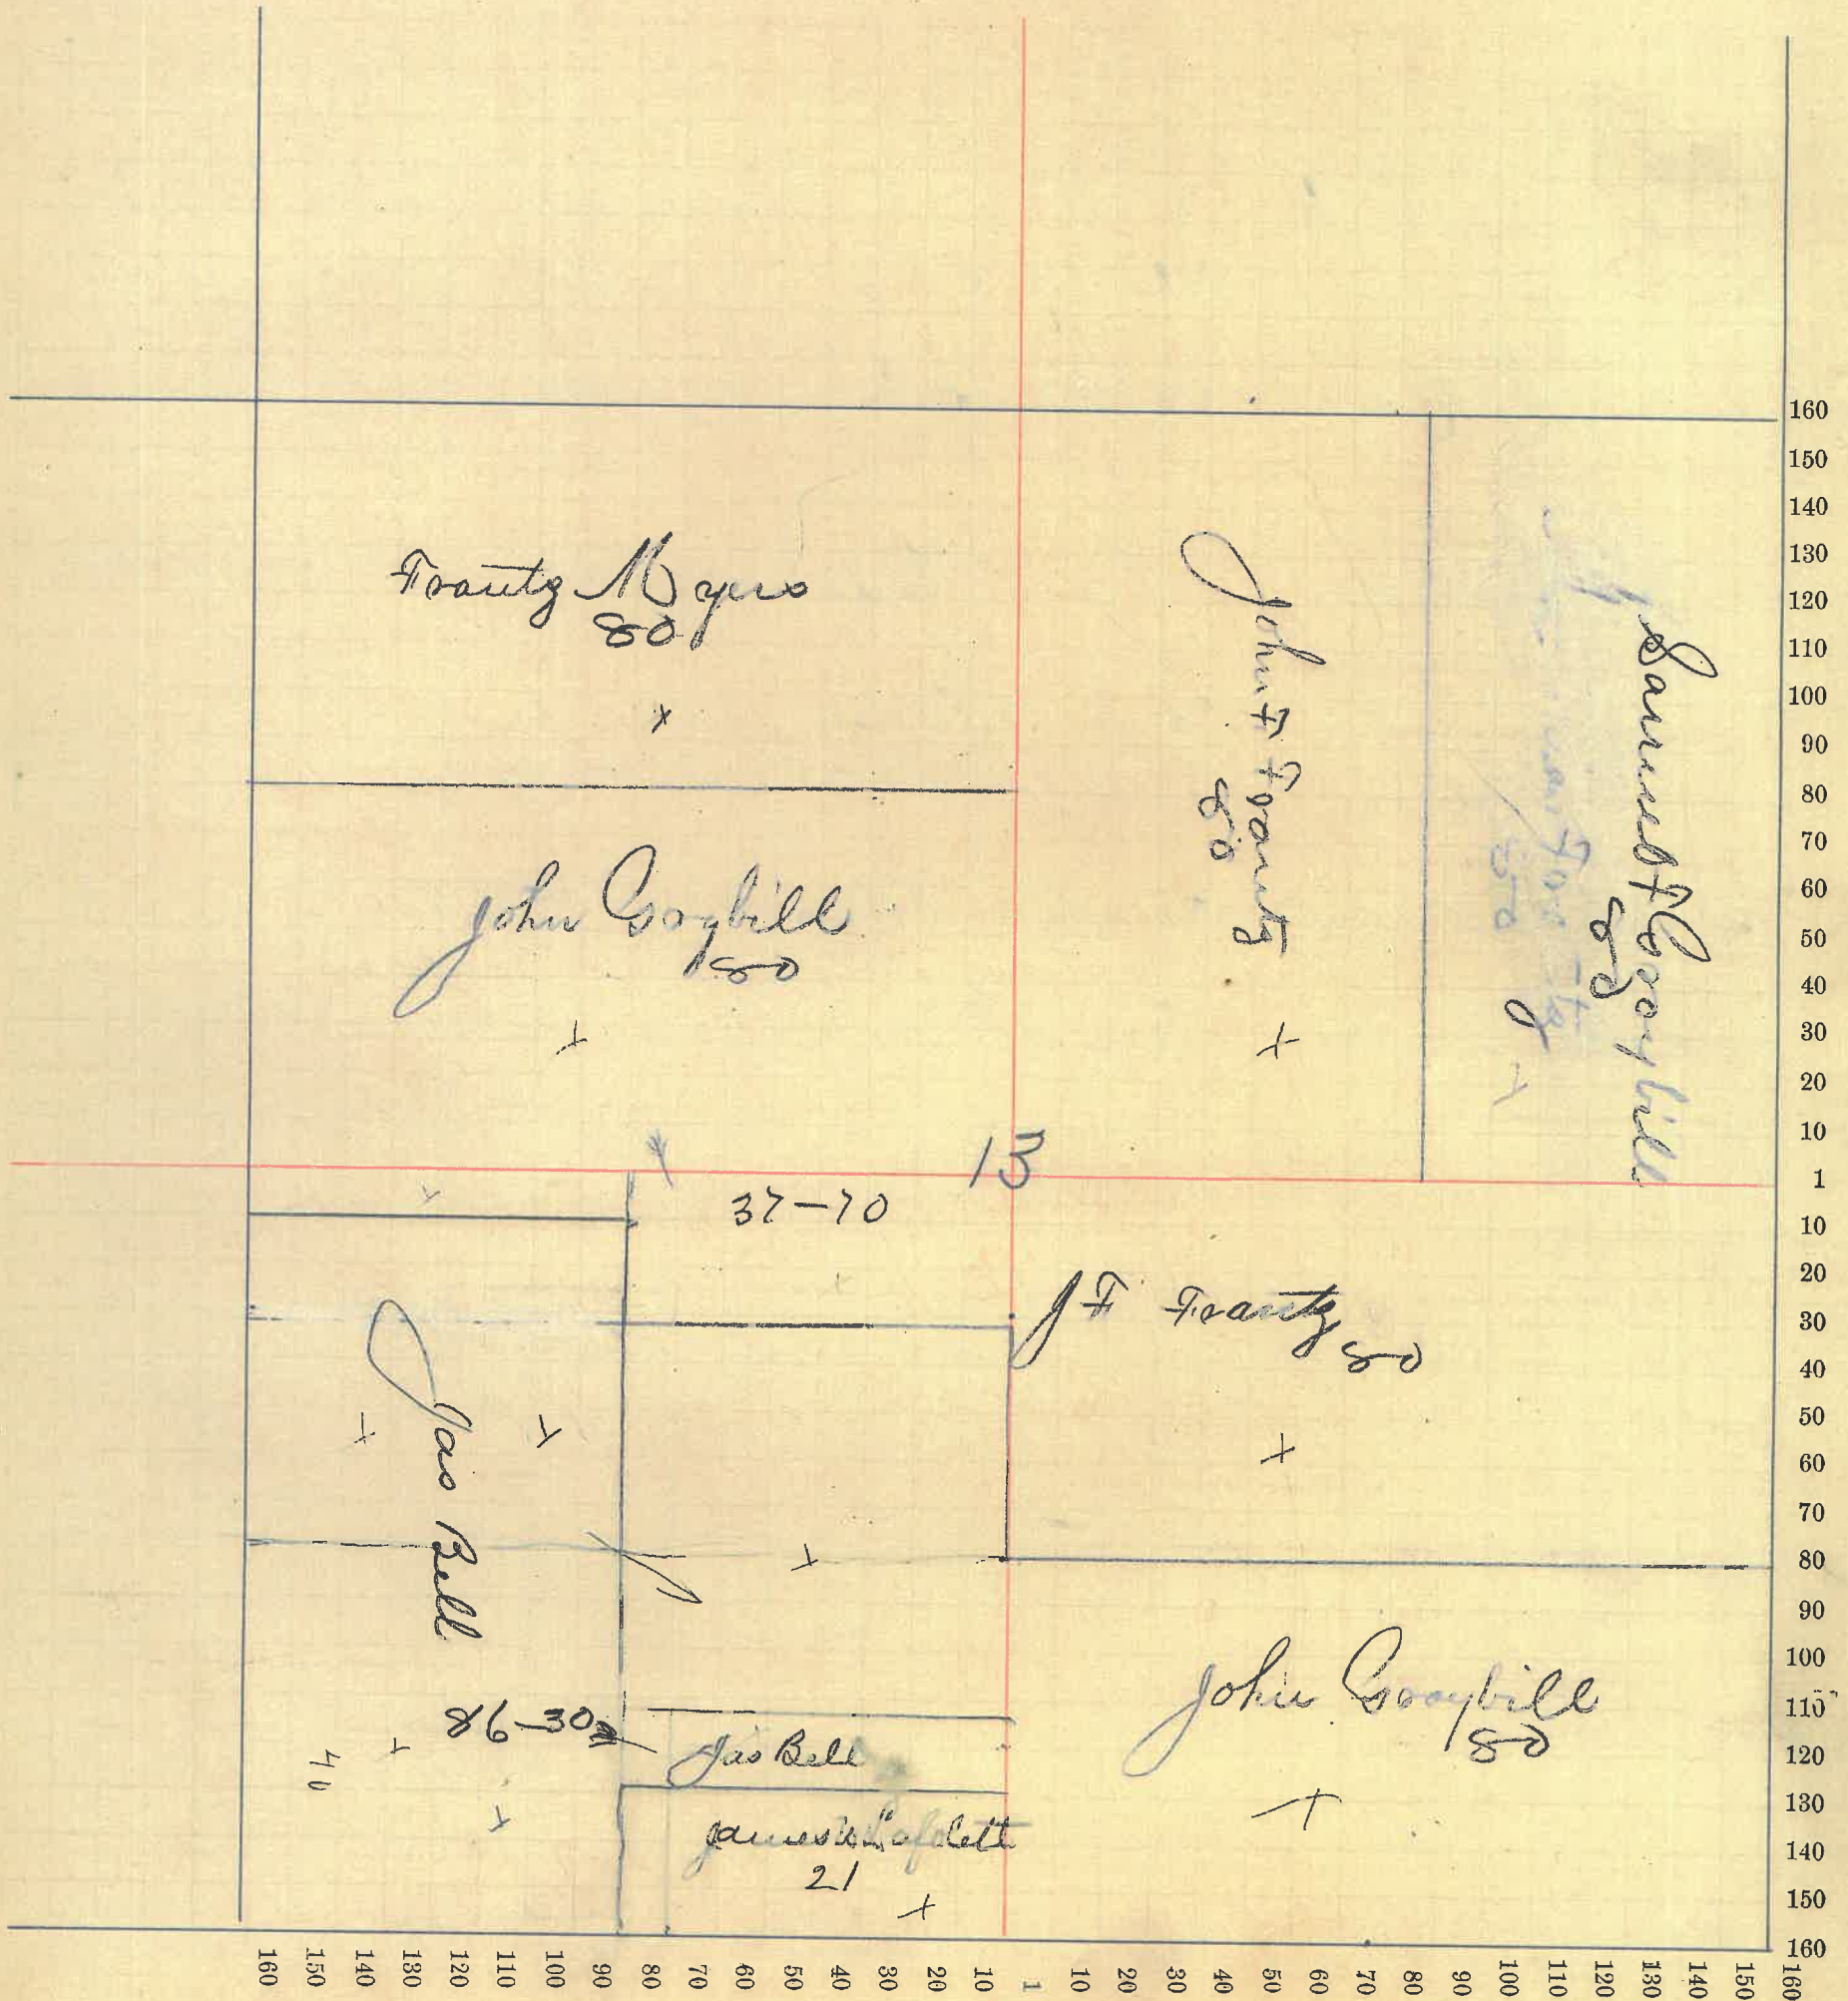 Frantz Myers
80
x
John Graybill
80
x
John F Frantz
80
x
Samuel F Graybill
80
x
13
37-70
J F Frantz
80
x
Jas Bell
x
x
x
86-30
40
x
x
Jas Bell
James
21
x
John Graybill
80
x
160
150
140
130
120
110
100
90
80
70
60
50
40
30
20
10
1
10
20
30
40
50
60
70
80
90
100
110
120
130
140
150
160
160 150 140 130 120 110 100 90 80 70 60 50 40 30 20 10 1 10 20 30 40 50 60 70 80 90 100 110 120 130 140 150 160